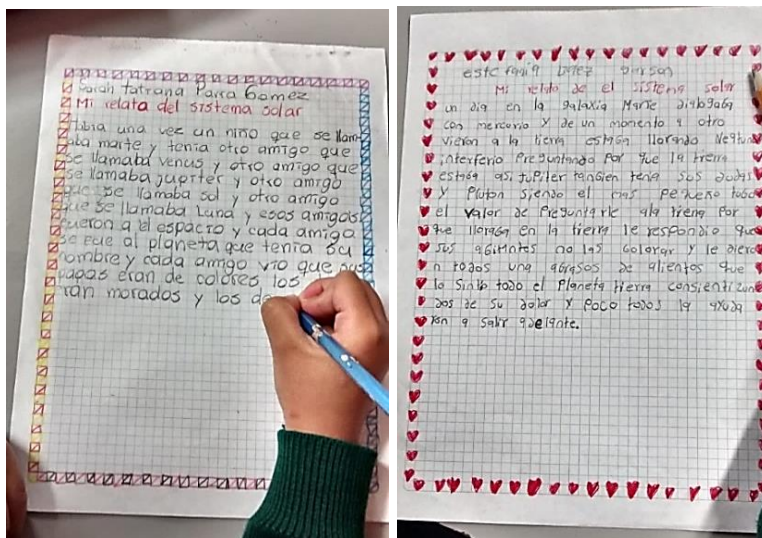 Sarah tatiana Parra Gomez
Mi relata del sistema solar
Habia una vez un niño que se llam-
aba marte y tenia otro amigo que
se llamaba venus y otro amigo que
se llamaba jupiter y otro amigo
que se llamaba sol y otro amigo
que se llamaba Luna y esos amigos
fueron a el espacio y cada amigo
se fue al planeta que tenia su
nombre y cada amigo vio que sus
papas eran de colores los
ran morados y los de
estefania
Mi relato de el sistema solar
un dia en la galaxia Marte dialogaba
con mercurio y de un momento a otro
vieron a la tierra estaba llorando Neptuno
interferio Preguntando Por que la tierra
estaba asi Jupiter tanbien tenia sus dudas
y Pluton siendo el mas pequeño tubo
el valor de Preguntarle ala tierra Por
que lloraba en la tierra le respondio que
sus abitantes no las y le diero
n todos una abrasos de alientos que
lo sintio todo el Planeta tierra
dos de su dolor y Poco todos la ayuda
ron a salir adelante.